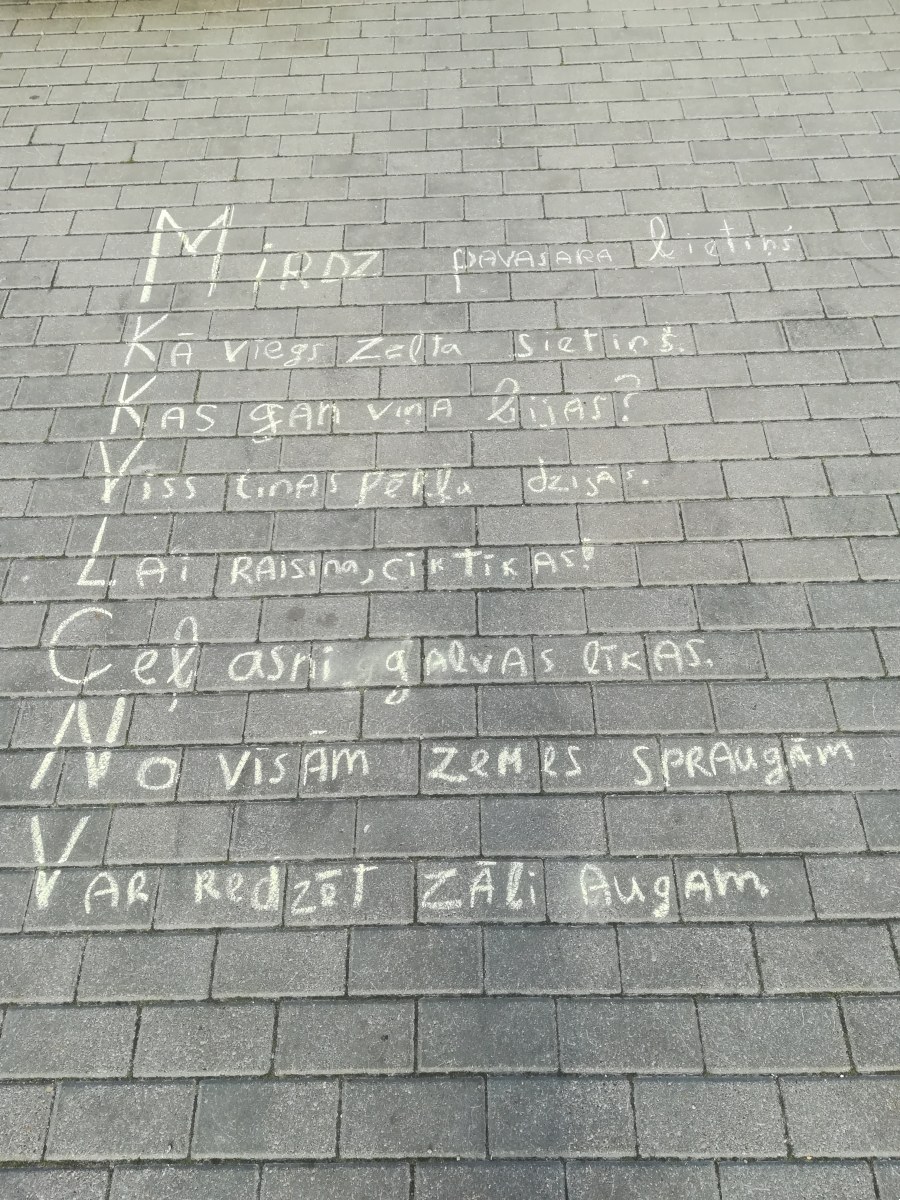 Mirdz pavasara lietiņš
Kā viegs zelta sietiņš.
Kas gan viņa lijas?
Viss tinas pērļu dzijās.
Lai raisina, cik tīkas!
Ceļ asni galvas līkas.
No visām zemes spraugām
Var redzēt zāli augam.